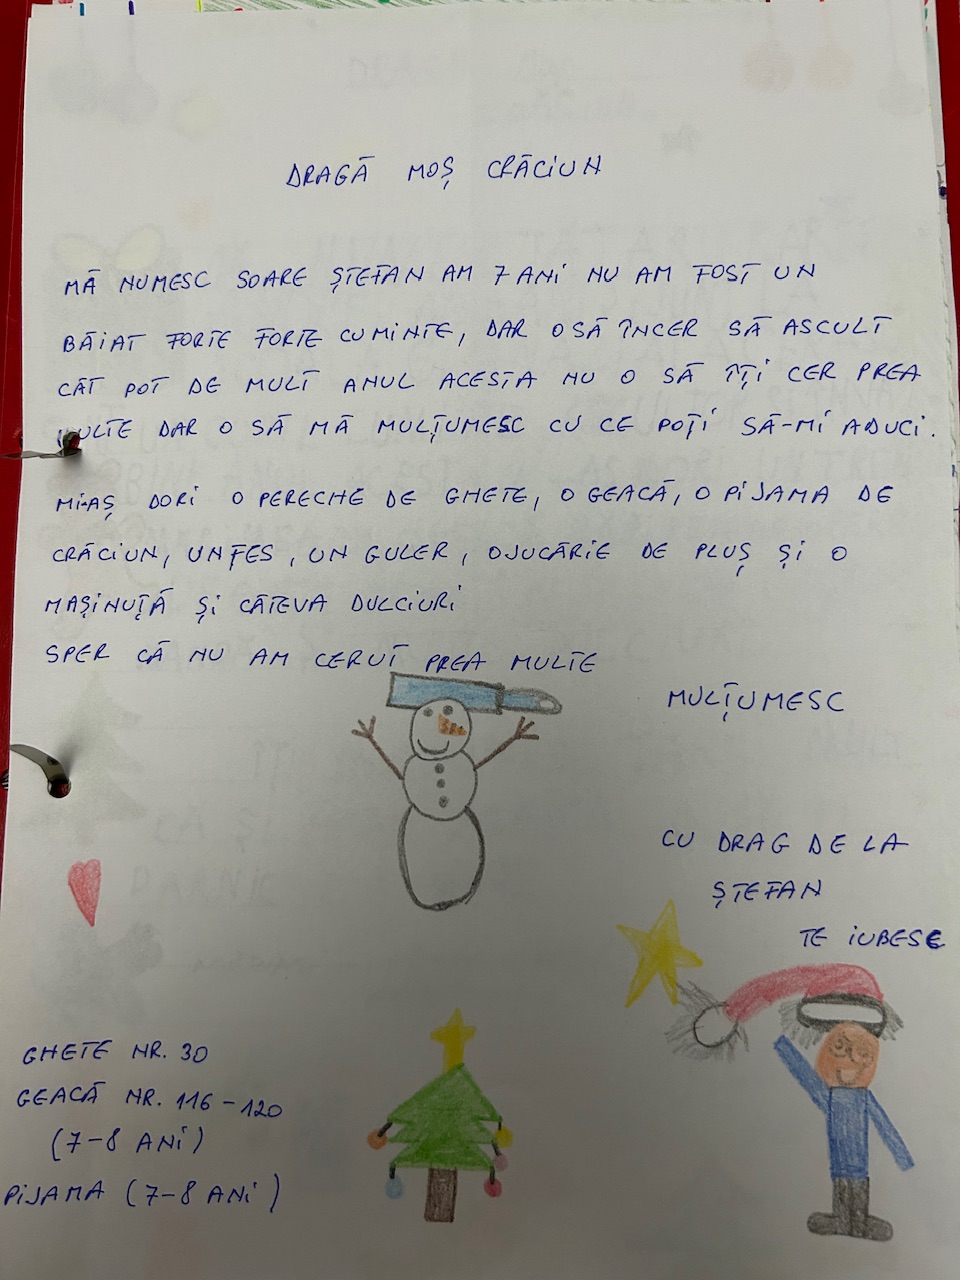 DRAGĂ MOȘ CRĂCIUN
MĂ NUMESC SOARE ȘTEFAN AM 7 ANI NU AM FOST UN
BĂIAT FORTE FORTE CUMINTE, DAR OSĂ ÎNCER SĂ ASCULT
CÂT POT DE MULT ANUL ACESTA NU O SĂ ÎȚI CER PREA
MULTE DAR O SĂ MĂ MULȚUMESC CU CE POȚI SĂ-MI ADUCI.
MI-AȘ DORI O PERECHE DE GHETE, O GEACĂ, O PIJAMA DE
CRĂCIUN, UN FES, UN GULER, O JUCĂRIE DE PLUȘ ȘI O
MAȘINUȚĂ ȘI CÂTEVA DULCIURI
SPER CĂ NU AM CERUT PREA MULTE
MULȚUMESC
CU DRAG DE LA
ȘTEFAN
TE IUBESC
GHETE NR. 30
GEACĂ NR. 116-120
(7-8 ANI)
PIJAMA (7-8 ANI)